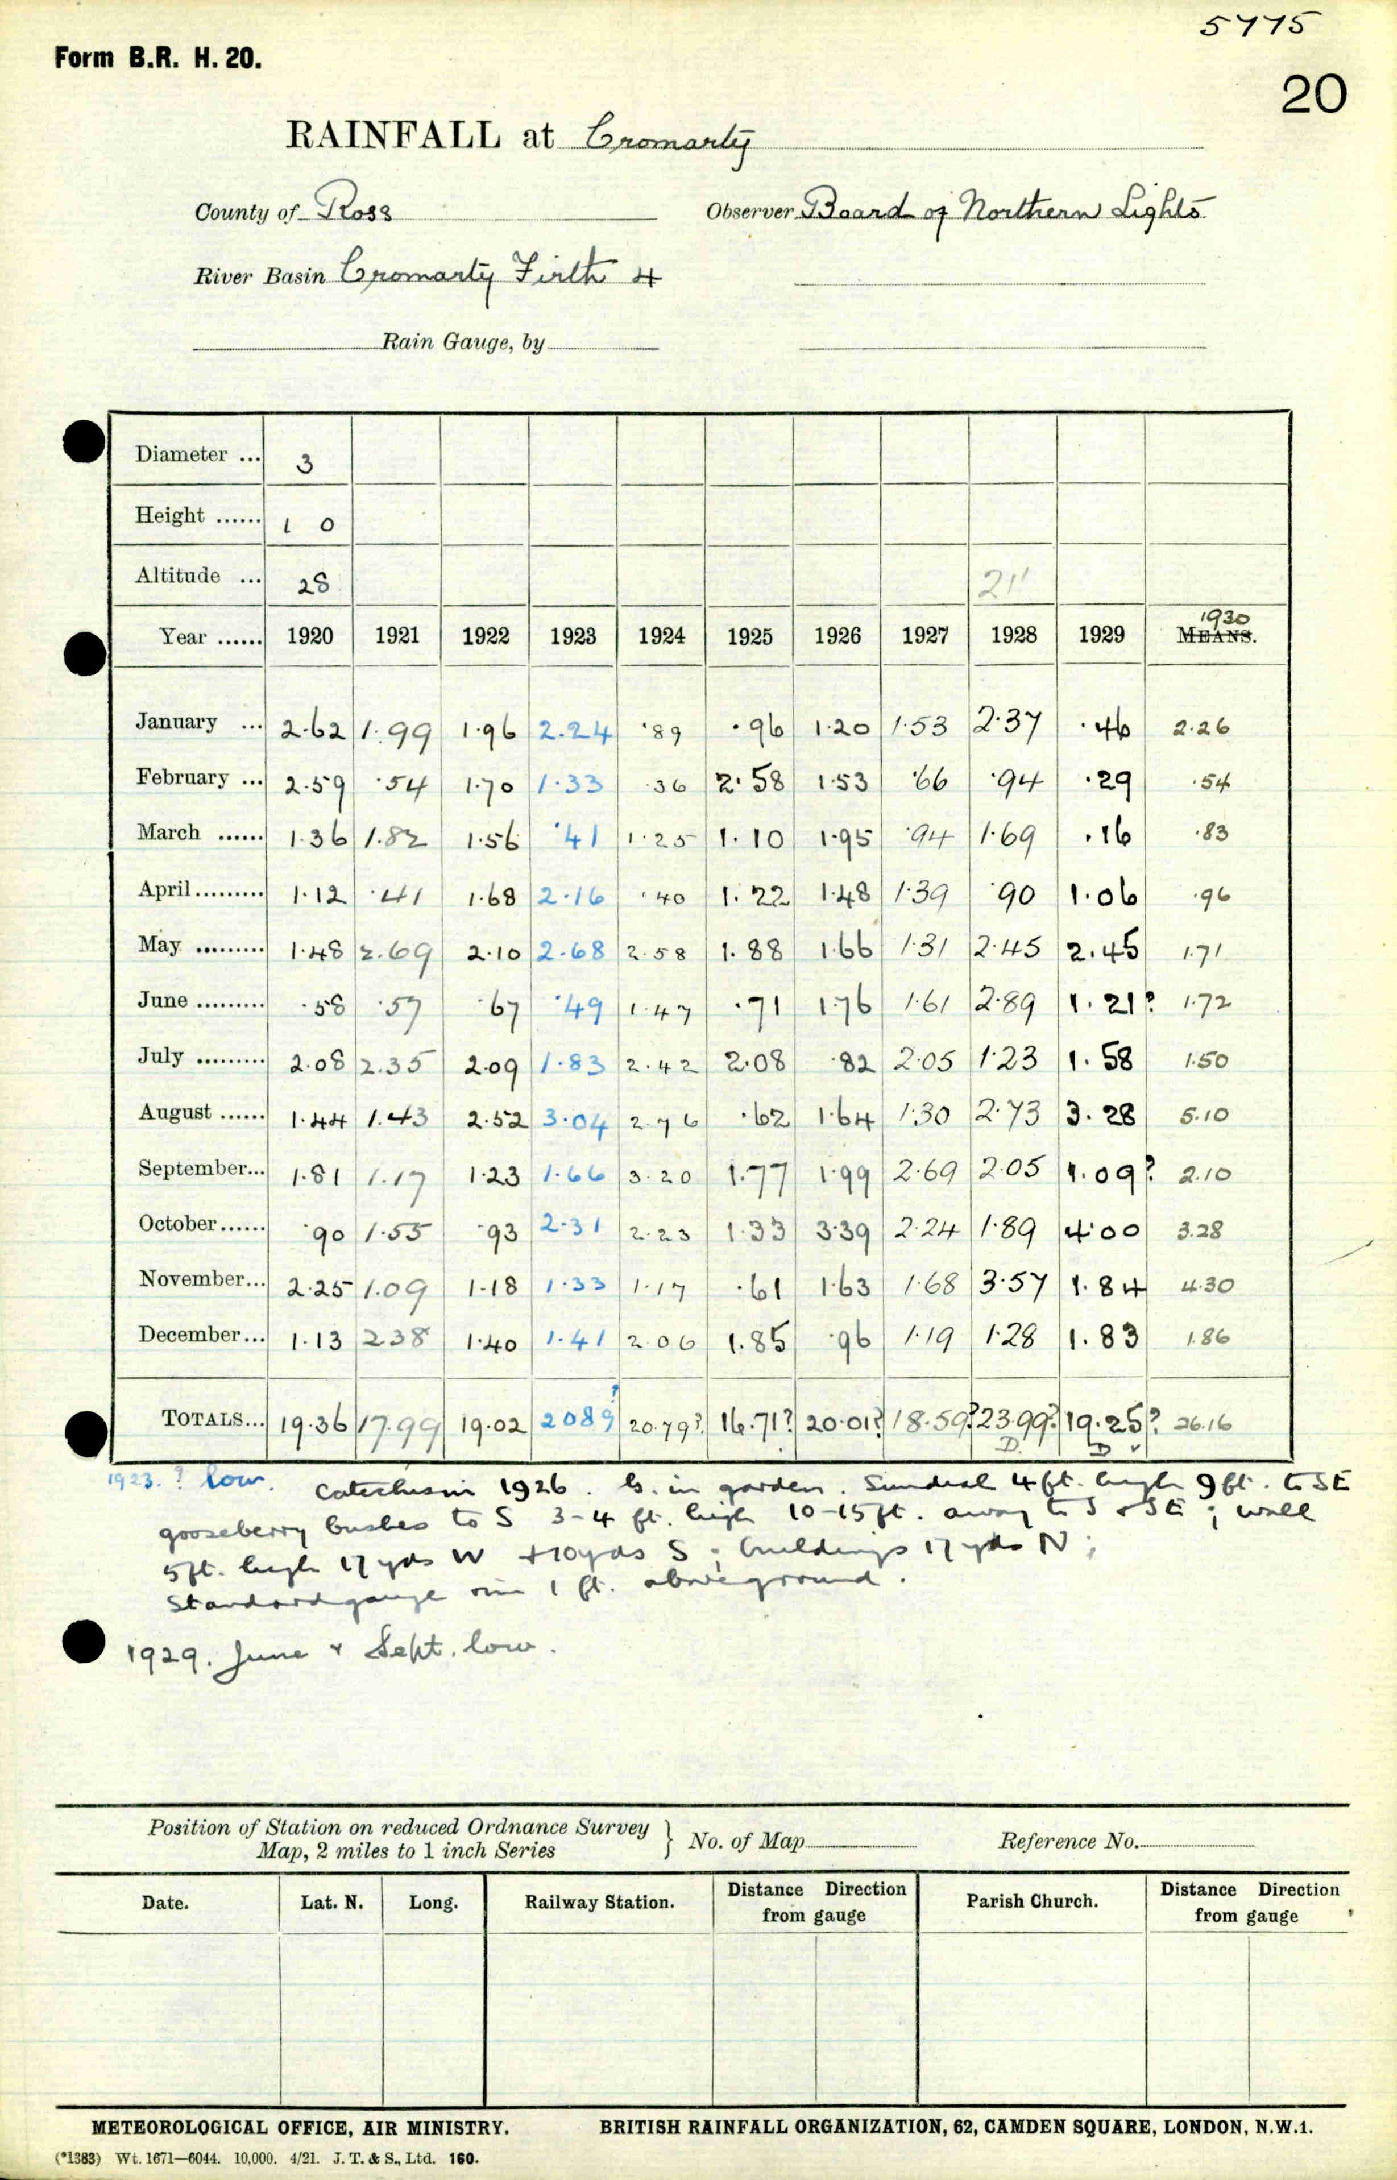 5775
Form B.R. H. 20.
20
RAINFALL at Cromarty
County of Ross Observer Board of Northern Lights
River Basin Cromarty Firth 4
Rain Gauge, by
Diameter ... 3
Height ...... 1 0
Altitude ... 28 21'
1930
Year ...... 1920 1921 1922 1923 1924 1925 1926 1927 1928 1929 MEANS.
January ... 2.62 1.99 1.96 2.24 .89 .96 1.20 1.53 2.37 .46 2.26
February ... 2.59 .54 1.70 1.33 .36 2.58 1.53 .66 .94 .29 .54
March ...... 1.36 1.82 1.56 .41 1.25 1.10 1.95 .94 1.69 .16 .83
April ......... 1.12 .41 1.68 2.16 .40 1.22 1.48 1.39 .90 1.06 .96
May ......... 1.48 2.69 2.10 2.68 2.58 1.88 1.66 1.31 2.45 2.45 1.71
June ......... .58 .57 .67 .49 1.47 .71 1.76 1.61 2.89 1.21? 1.72
July ......... 2.08 2.35 2.09 1.83 2.42 2.08 .82 2.05 1.23 1.58 1.50
August ...... 1.44 1.43 2.52 3.04 2.76 .62 1.64 1.30 2.73 3.28 5.10
September... 1.81 1.17 1.23 1.66 3.20 1.77 1.99 2.69 2.05 1.09? 2.10
October...... .90 1.55 .93 2.31 2.23 1.33 3.39 2.24 1.89 4.00 3.28
November... 2.25 1.09 1.18 1.33 1.17 .61 1.63 1.68 3.57 1.84 4.30
December... 1.13 2.38 1.40 1.41 2.06 1.85 .96 1.19 1.28 1.83 1.86
TOTALS... 19.36 17.99 19.02 2089? 20.79? 16.71? 20.01? 18.59? 23.99? 19.25? 26.16
D. D
1923. ? low. Catechism 1926. G. in garden. Sundial 4 ft. high 9 ft. to SE
gooseberry bushes to S 3-4 ft. high 10-15 ft. away to S & SE ; wall
5 ft. high 17 yds W + 70 yds S ; buildings 17 yds N ;
Standard gauge rim 1 ft. above ground.
1929. June & Sept. low.
Position of Station on reduced Ordnance Survey
Map, 2 miles to 1 inch Series } No. of Map Reference No.
Date. Lat. N. Long. Railway Station. Distance Direction from gauge Parish Church. Distance Direction from gauge
METEOROLOGICAL OFFICE, AIR MINISTRY. BRITISH RAINFALL ORGANIZATION, 62, CAMDEN SQUARE, LONDON, N.W.1.
(*1383) Wt. 1671—6044. 10,000. 4/21. J. T. & S., Ltd. 160.